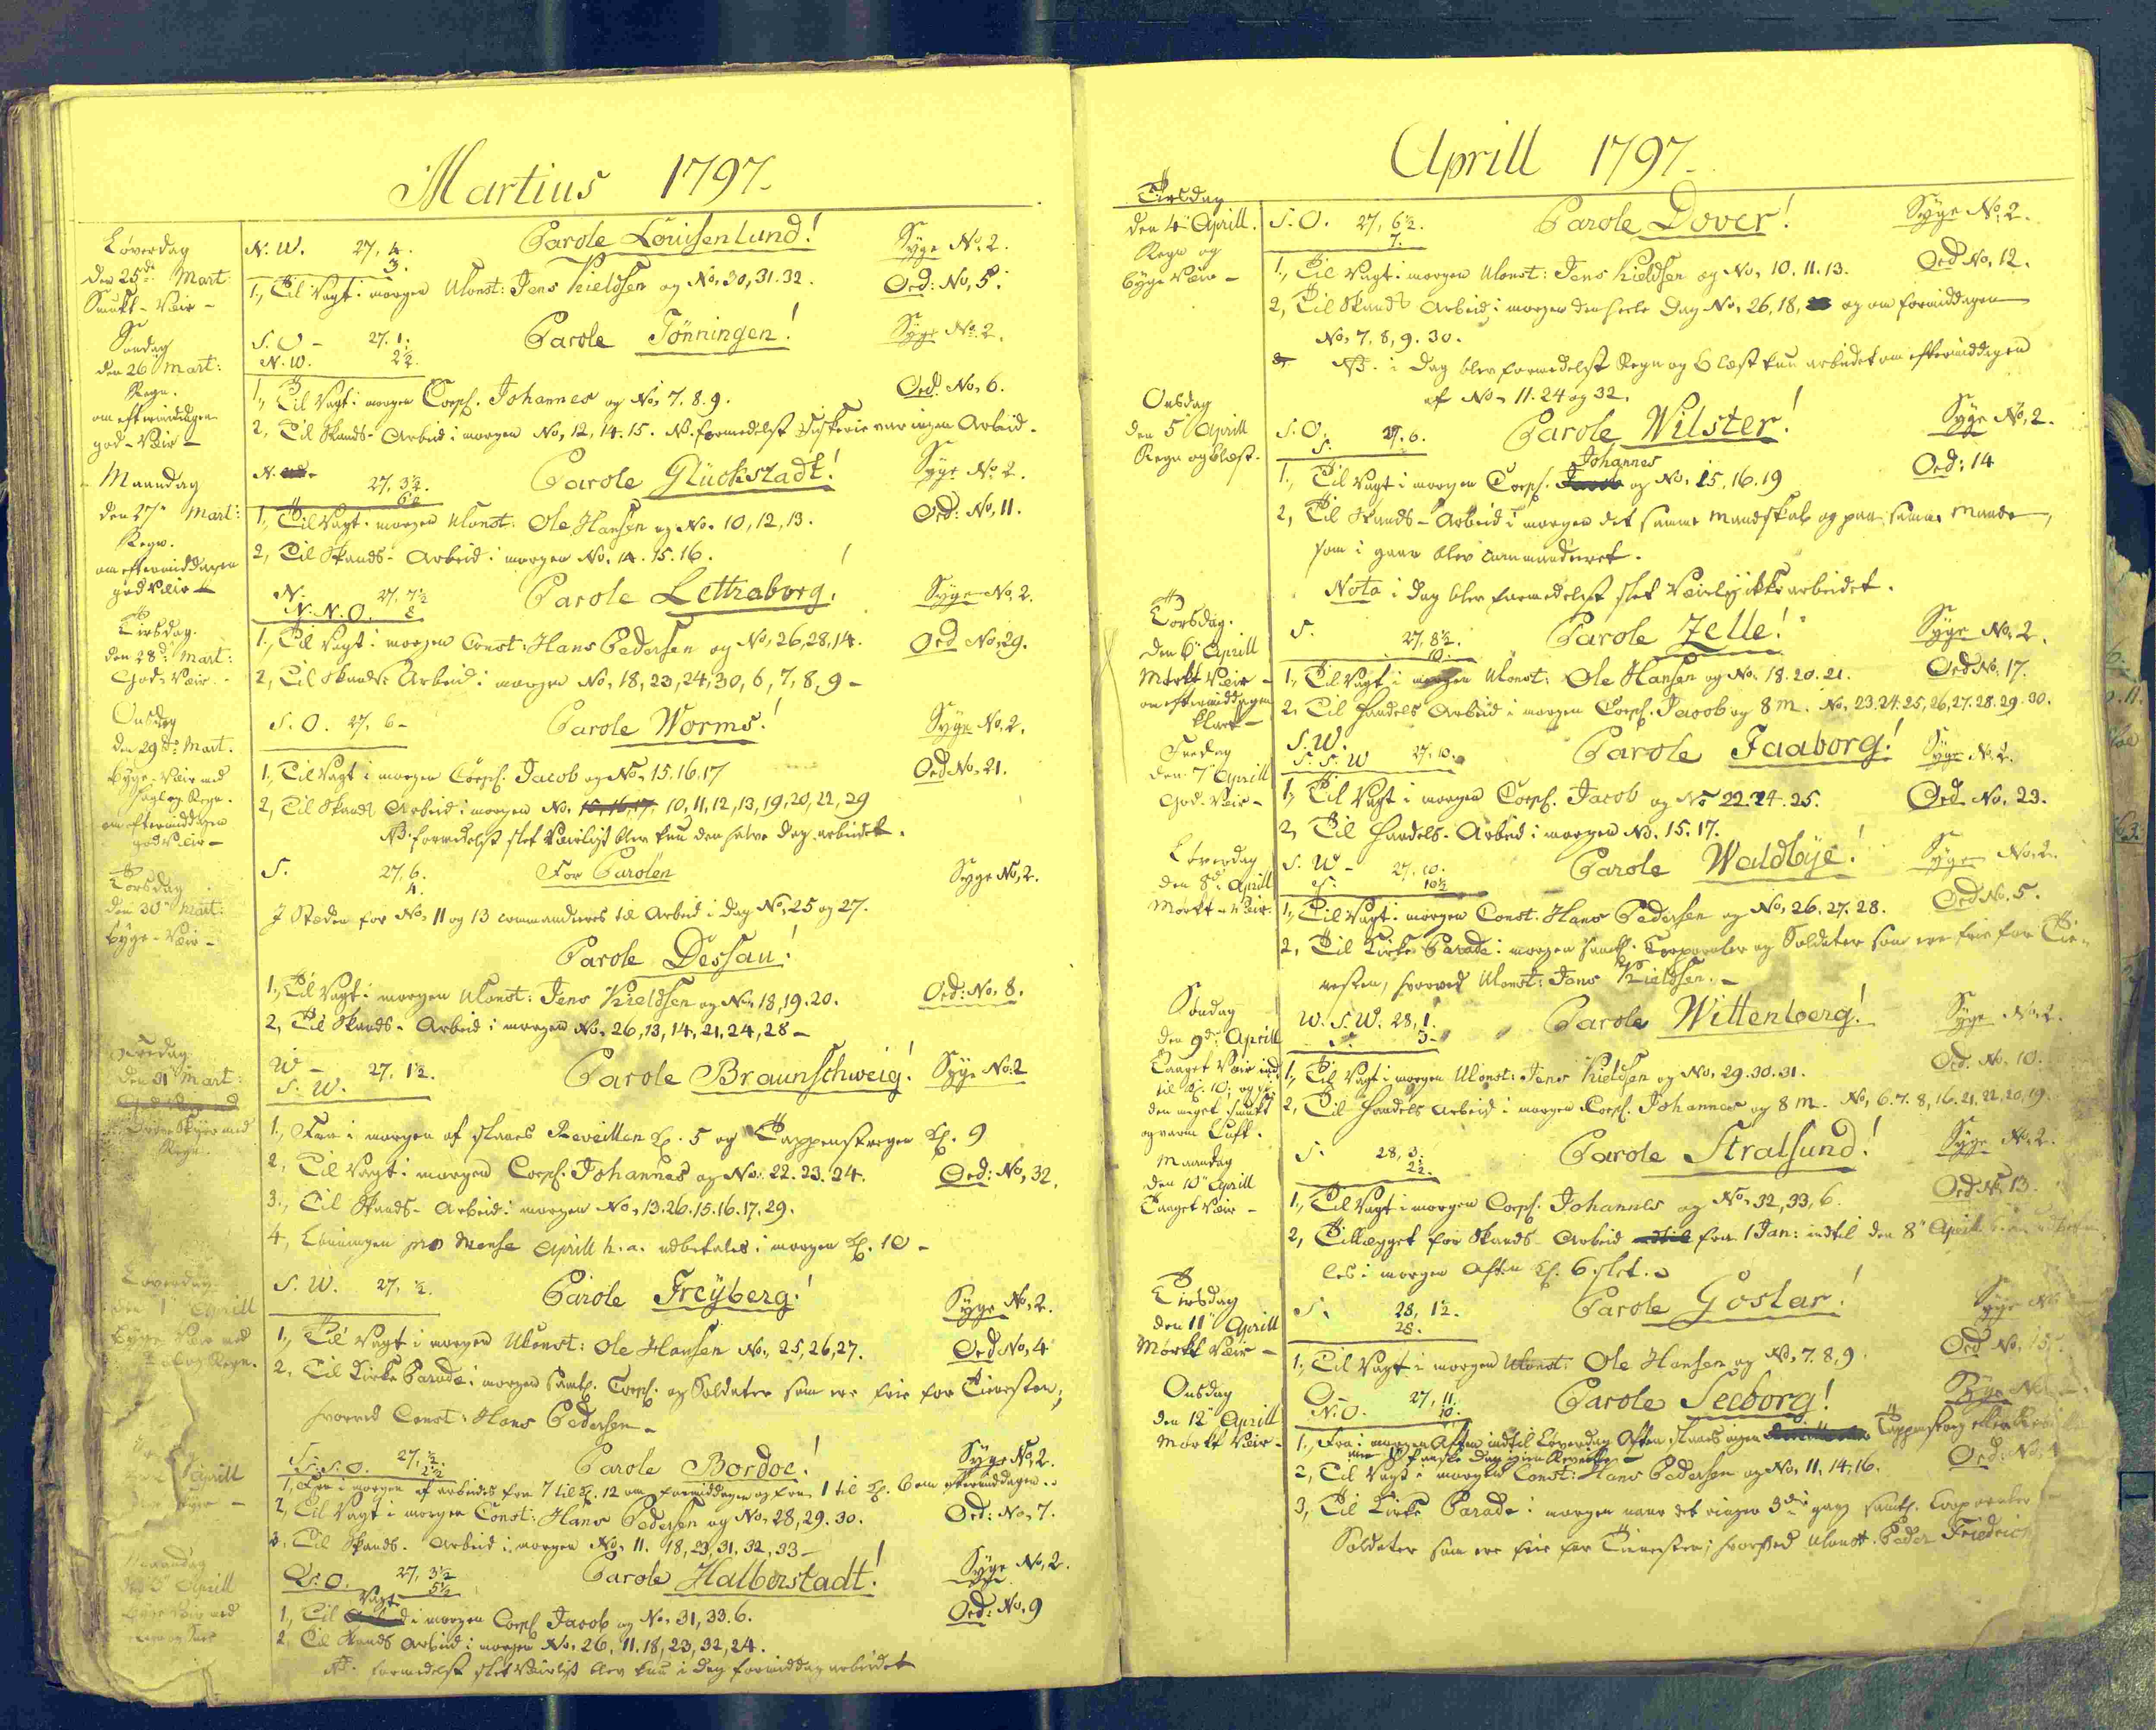 Martius 1797.
Løverdag
den 25de Mart:
Smukt-Veir -
N. W. 27, 4.
3.
Parole Louisenlund!
Syge No. 2.
1, Til Vagt i morgen UConst: Jens Kieldsen og No, 30, 31. 32.
Ord: No, 5.
Søndag
den 26 Mart:
Regn.
om eftermiddagen
god-Veir -
S. O - 27. 1.
N. W. 2½.
Parole Tönningen!
Syge No. 2.
1, Til Vagt i morgen Corpl. Johannes og No, 7. 8. 9.
Ord. No, 6.
2, Til Skands-Arbeid i morgen No, 12, 14. 15. NB. formedelst Fiskerie var ingen Arbeid.
Maandag
den 27de Mart:
Regn.
om eftermiddagen
god Veir -
N. 27, 3½.
6½
Parole Glückstadt!
Syge No. 2.
1, Til Vagt i morgen UConst: Ole Hansen og No. 10, 12, 13.
Ord: No, 11.
2, Til Skands-Arbeid i morgen No, 14. 15. 16.
Tirsdag.
den 28de Mart:
God-Veir.
N. 27, 7½
N. N. O. 8
Parole Lethraborg!
Syge No, 2.
1, Til Vagt i morgen Const: Hans Pedersen og No, 26, 28, 14.
Ord No, 29.
2, Til Skands-Arbeid i morgen No, 18, 23, 24, 30, 6, 7, 8, 9 -
Onsdag
den 29de Mart.
Byge-Veir med
Hagl og Regn.
om eftermiddagen
god Veir -
S. O. 27, 6 -
Parole Worms!
Syge No, 2.
1, Til Vagt i morgen Corpl. Jacob og No, 15. 16. 17
Ord No, 21.
2, Til Skands Arbeid i morgen No, 15, 16, 17, 10, 11, 12, 13, 19, 20, 22, 29
NB. formedelst slet Veirligt blev kun den halve Dag arbeidet.
Torsdag
den 30te Mart:
Byge-Veir -
S. 27, 6.
4.
For Parolen
Syge No, 2.
I Stæden for No, 11 og 13 commanderes til Arbeid i Dag No, 25 og 27.
Parole Dessau!
1, Til Vagt i morgen UConst: Jens Kieldsen og No, 18, 19. 20.
Ord: No, 8.
2, Til Skands-Arbeid i morgen No, 26, 13, 14, 21, 24, 28 -
Fredag
den 31 Mart:
med
Regn.
W - 27. 1½.
S. W.
Parole Braunschweig!
Syge No: 2
1, Fra i morgen af slaaes Reveillen Kl. 5 og Tappenstregen Kl. 9
2, Til Vagt i morgen Corpl. Johannes og No, 22. 23. 24.
Ord: No, 32.
3, Til Skands-Arbeid i morgen No, 13. 26. 15. 16. 17. 29.
4, Lønningen pro Mense Aprill h. a. udbetales i morgen Kl. 10 -
Løverdag
den 1 Aprill
Byge Veir med
og Regn.
S. W. 27, ½.
Parole Freyberg!
Syge No, 2.
1, Til Vagt i morgen UConst: Ole Hansen No, 25, 26, 27.
Ord No, 4
2, Til Kirke Parade i morgen samtl. Corpl. og Soldater som ere frie for Tienesten;
hvorved Const: Hans Pedersen -
Aprill
S. S. O. 27, ½.
2½
Parole Bordoe!
Syge No, 2.
1, Fra i morgen af arbeides fra 7 til Kl. 12 om formiddagen og fra 1 til Kl. 6 om eftermiddagen.
2, Til Vagt i morgen Const: Hans Pedersen og No, 28, 29. 30.
Ord: No, 7.
3, Til Skands. Arbeid i morgen No, 11. 18, 23, 31. 32, 33 -
Maandag
3 Aprill
Byge Veir med
S. O. 27, 3½
5½
Parole Halberstadt!
Syge No, 2.
1, Til Vagt i morgen Corpl Jacob og No, 31, 33. 6.
Ord: No, 9
2, Til Skands Arbeid i morgen No, 26, 11. 18, 23, 32, 24.
NB. formedelst slet Veirligt blev kun i Dag formiddag arbeidet
Aprill 1797.
Tirsdag
den 4de Aprill.
Regn og
Byge Veir -
S. O. 27, 6½.
7.
Parole Dover!
Syge No, 2.
1, Til Vagt i morgen UConst: Jens Kieldsen og No, 10. 11. 13.
Ord No, 12.
2, Til Skands Arbeid i morgen den heele Dag No, 26, 18, og om formiddagen
No, 7. 8, 9. 30.
NB. i Dag blev formedelst Regn og Blæst kun arbeidet om eftermiddagen
af No, 11. 24 og 32.
Onsdag
den 5 Aprill
Regn og Blæst.
S. O.
S. 27. 6.
Parole Wilster!
Syge No, 2.
1, Til Vagt i morgen Corpl. Johannes og No, 15, 16. 19
Ord: 14
2, Til Skands-Arbeid i morgen det samme Mandskab og paa samme Maade,
som i gaar blev commanderet.
Nota i Dag blev formedelst slet Veirligt ikke arbeidet.
Torsdag.
den 6te Aprill
Mørkt Veir -
om eftermiddagen
klart -
S. 27, 8½.
10.
Parole Zelle!
Syge No, 2.
1, Til Vagt i morgen UConst: Ole Hansen og No, 18. 20. 21.
Ord No: 17.
2. Til Handels Arbeid i morgen Corpl. Jacob og 8 M. No, 23. 24. 25, 26, 27. 28. 29. 30.
Fredag
den 7de Aprill
God-Veir -
S. W.
S. S. W 27, 10.
Parole Faaborg!
Syge No. 2.
1, Til Vagt i morgen Corpl. Jacob og No 22. 24. 25.
Ord No, 23.
2, Til Handels-Arbeid i morgen No. 15. 17.
Løverdag
den 8de Aprill
Mørkt-Veir.
S. W - 27. 10.
S. 10½
Parole Waldbye!
Syge No. 2.
1, Til Vagt i morgen Const. Hans Pedersen og No, 26. 27. 28.
Ord No. 5.
2, Til Kirke Parade i morgen samtl. Corporaler og Soldater som ere frie for Tie-
nesten, hvorved UConst: Jens Kieldsen. -
Søndag
den 9de Aprill
Taaget Veir ind
til Kl. 10, og si
den meget smukt
og varm Luft.
W. S. W. 28, 1.
S. 3 -
Parole Wittenberg!
Syge No. 2.
1, Til Vagt i morgen UConst: Jens Kieldsen og No, 29. 30. 31.
Ord. No. 10.
2, Til Handels Arbeid i morgen Corpl. Johannes og 8 M. No, 6. 7. 8, 16. 21, 22, 20, 19.
Maandag
den 10de Aprill
Taaget Veir -
S. 28, 3.
2½.
Parole Stralsund!
Syge No. 2.
1, Til Vagt i morgen Corpl. Johannes og No, 32, 33, 6.
Ord No, 13.
2, Tillægget for Skands-Arbeid fra 1 Jan: indtil den 8de Aprill
les i morgen Aften Kl. 6 slet.
Tirsdag
den 11te Aprill
Mørkt Veir -
S. 28, 1½.
28.
Parole Goslar!
Syge No
1, Til Vagt i morgen UConst: Ole Hansen og No, 7. 8, 9.
Ord No, 15.
Onsdag
den 12te Aprill
Mørkt Veir -
O -
N. O. 27, 11.
10.
Parole Seeborg!
Syge No
1, Fra i morgen Aften indtil Løverdag Aften slaaes ingen Tappenstreg eller
2, Til Vagt i morgen Const: Hans Pedersen og No, 11. 14. 16.
Ord: No,
3, Til Kirke Parade i morgen naar det ringer 3die gang samtl. Corporaler
Soldater som ere frie for Tienesten; hvorved UConst. Peder Friedrich